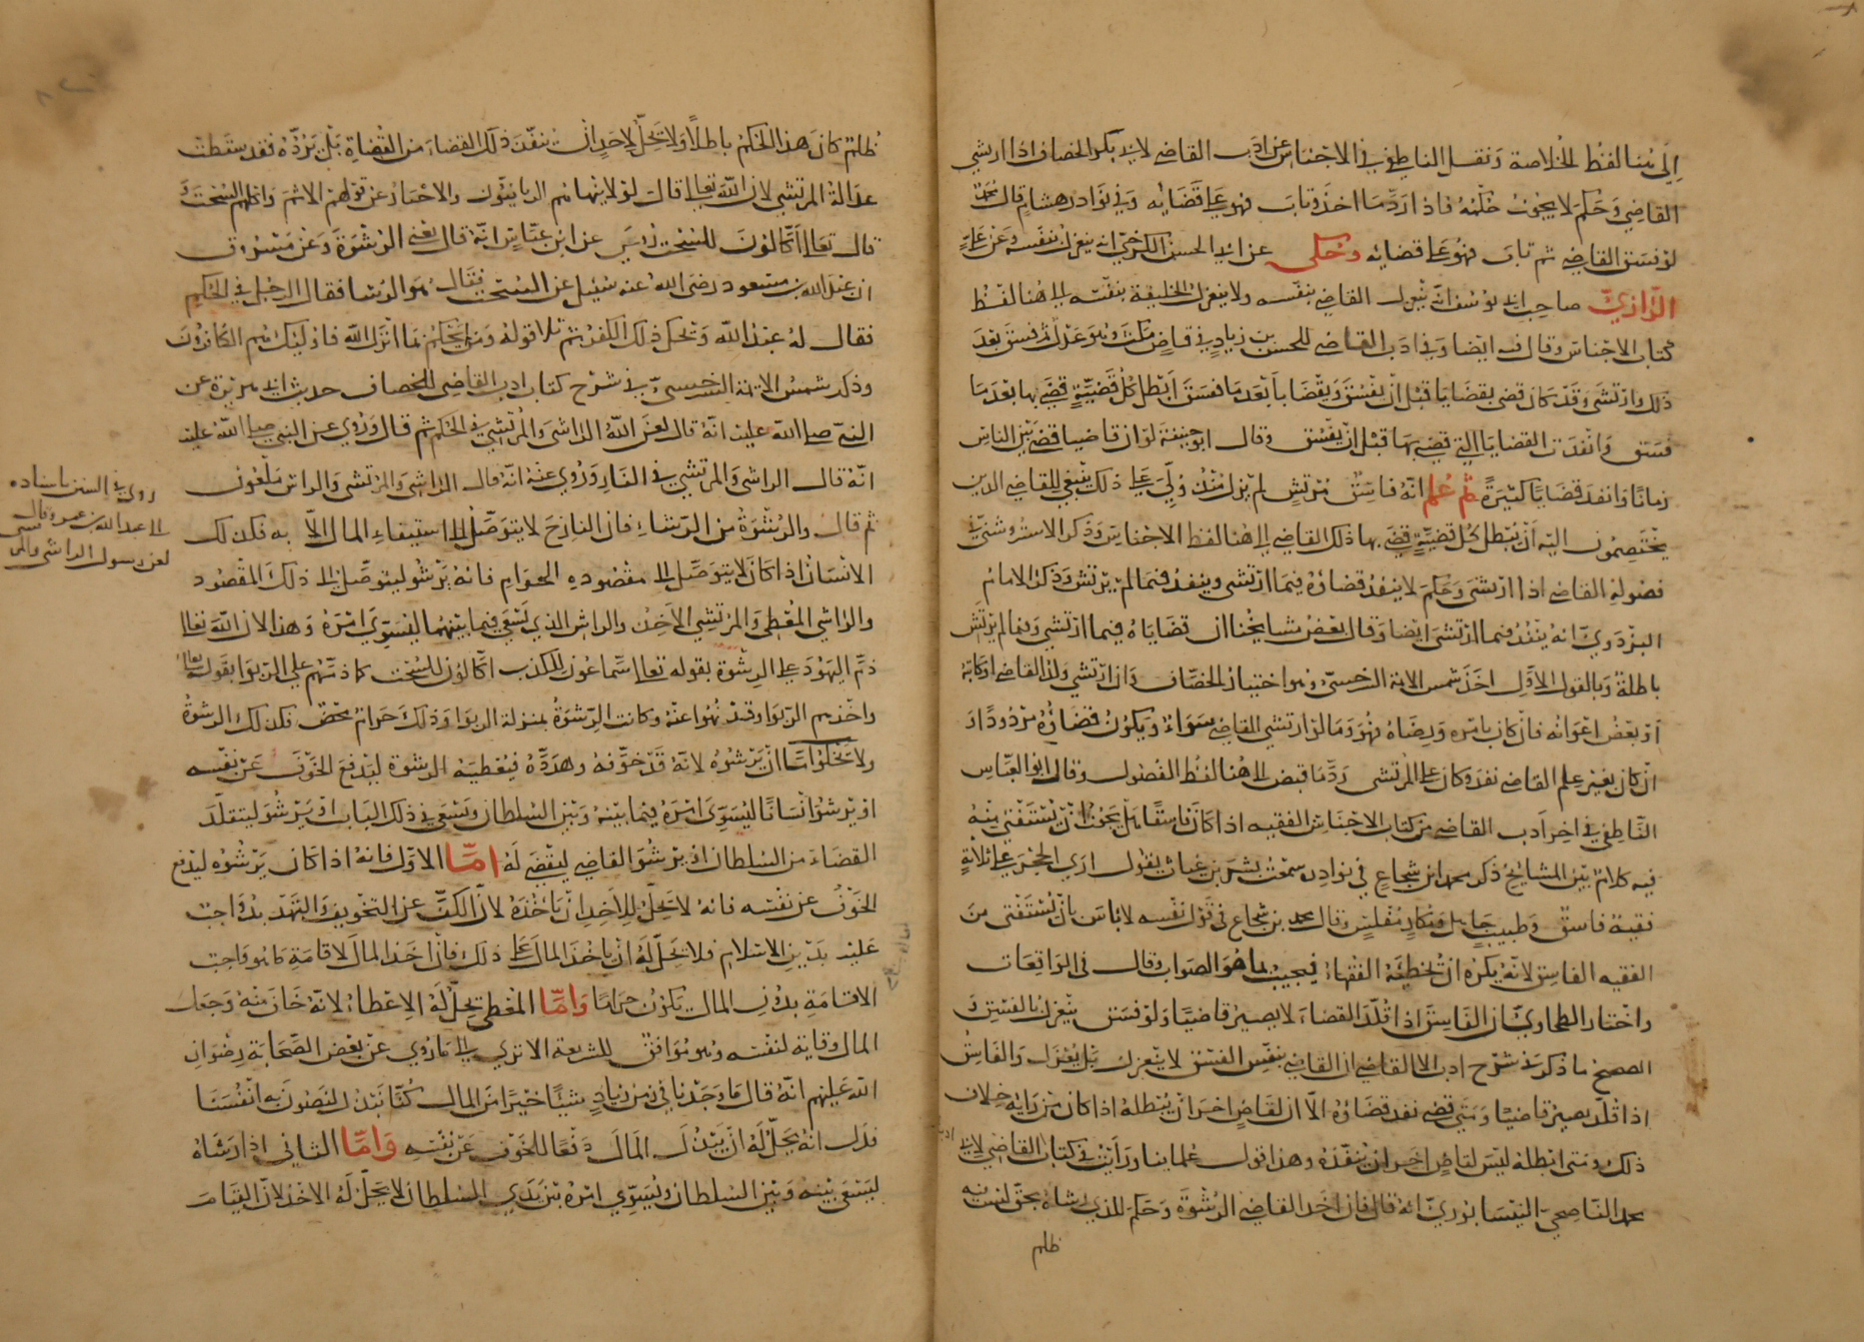 إلى هنا لفظ الخلاصة ونقل الناطفي في الاجناس عن ادب القاضي لابي بكر الخصاف اذا ارتشي
القاضي وحكم لا يجوز حكمه فاذا رد ما اخذ وتاب فهو على قضائه وفي نوادر هشام قال محمد
لو فسق القاضي ثم تاب فهو على قضائه وحكى عن ابي الحسن الكرخي انه ينعزل بنفسه وعن علي
الرازي صاحب ابي يوسف انه ينعزل القاضي بنفسه ولا ينعزل الخليفة بنفسه الى هنا لفظ
كتاب الاجناس وقال فيه ايضا وفي ادب القاضي للحسن بن زياد في قاض مكث وهو عدل ثم فسق بعد
ذلك وارتشى وقد كان قضى بقضايا قبل ان يفسق وبقضايا بعد ما فسق ابطل كل قضية قضى بها بعد ما
فسق وانفذت القضايا التي قضى بها قبل ان يفسق وقال ابو حنيفة لو ان قاضيا قضى بين الناس
زمانا وانفذ قضايا كثيرة ثم علم انه فاسق مرتش لم يزل منذ ولي على ذلك ينبغي للقاضي الذين
يختصمون اليه ان يبطل كل قضية قضى بها ذلك القاضي الى هنا لفظ الاجناس وذكر الاستروشني في
فصوله القاضي اذا ارتشى وحكم لا ينفذ قضاؤه فيما ارتشى وينفذ فيما لم يرتش وذكر الامام
البزدوي انه ينفذ فيما ارتشى ايضا وقال بعض مشايخنا ان قضاياه فيما ارتشى وفيما لم يرتش
باطلة وبالقول الاول اخذ شمس الائمة السرخسي وهو اختيار الخصاف وان ارتشي ولد القاضي او كاتبه
او بعض اعوانه فان كان بامره ورضاه فهو وما لو ارتشى القاضي سواء ويكون قضاؤه مردودا و
ان كان بغير علم القاضي نفذ وكان على المرتشى رد ما قبض الى هنا لفظ الفصول وقال ابو العباس
الناطفي في اخر ادب القاضي من كتاب الاجناس الفقيه اذا كان فاسقا هل يجوز ان يستفتى منه
فيه كلام بين المشايخ ذكر محمد ابن شجاع في نوادره سمعت بشر بن غياث يقول ارى الحجر على ثلاثة
فقيه فاسق وطبيب جاهل ومكار مفلس وقال محمد بن شجاع في قول نفسه لا باس بان يستفتى من
الفقيه الفاسق لانه يكره ان تخطئه الفقهاء فيجيب بما هو الصواب وقال في الواقعات
واختار الطحاوي ان الفاسق اذا قلد القضاء لا يصير قاضيا ولو فسق ينعزل بالفسق و
الصحيح ما ذكر في شرح ادب القاضي ان القاضي بنفس الفسق لا ينعزل بل يعزل والفاسق
اذا قلد يصير قاضيا ومتى قضى نفذ قضاؤه الا ان لقاض اخر ان يبطله اذا كان من رايه خلاف
ذلك ومتى ابطله ليس لقاض اخر ان ينفذه وهذا قول علمائنا ورايت في كتاب القاضي لابي
محمد الناصحي النيسابوري انه قال فان اخذ القاضي الرشوة وحكم للذي رشاه بحق لنفسه
ظلم
ظلم كان هذا الحكم باطلا ولا يحل لاحد ان ينفذ ذلك القضاء من القضاة بل يرده فقد سقطت
عدالة المرتشي لان الله تعالى قال لولا ينهاهم الربانيون والاحبار عن قولهم الاثم واكلهم السحت و
قال تعالى اكالون للسحت روي عن ابن عباس انه قال يعني الرشوة وعن مسروق
ان عبد الله بن مسعود رضى الله عنه سئل عن السحت فقال هو الرشا فقال الرجل في الحكم
فقال له عبد الله وحكى ذلك الكفر ثم تلا قوله ومن لم يحكم بما انزل الله فاولئك هم الكافرون
وذكر شمس الائمة السرخسي في شرح كتاب ادب القاضي للخصاف حديث ابي هريرة عن
النبي صلى الله عليه انه قال لعن الله الراشي والمرتشي في الحكم ثم قال وروي عن النبي صلى الله عليه
انه قال الراشي والمرتشي في النار وروي عنه انه قال الراشي والمرتشي والراىش ملعون
ثم قال والرشوة من الرشاء فان النازح لا يتوصل الى استيفاء الماء الا به فكذلك
الانسان اذا كان لا يتوصل الى مقصوده الحرام فانه يرشو ليتوصل الى ذلك المقصود
والراشي المعطي والمرتشي الاخذ والرائش الذي يسعى فيما بينهما ليسوي امره وهذا لان الله تعالى
ذم اليهود على الرشوة بقوله تعالى سماعون للكذب اكالون للسحت كما ذمهم على الربوا بقوله تعالى
واخذهم الربوا وقد نهوا عنه وكانت الرشوة بمنزلة الربوا وذلك حرام محض فكذلك الرشوة
ولا يخلوا اما ان يرشوه لانه قد خوفه وهدده فيعطيه الرشوة ليدفع الخوف عن نفسه
او يرشو انسانا ليسوي امره فيما بينه وبين السلطان ويسعى في ذلك الباب او يرشو ليتقلد
القضاء من السلطان او يرشو القاضي ليقضي له اما الاول فانه اذا كان يرشوه ليدفع
الخوف عن نفسه فانه لا يحل للاخذ ان ياخذه لان الكف عن التخويف والتهدد واجب
عليه بدين الاسلام فلا يحل له ان ياخذ المال على ذلك فان اخذ المال لاقامة ما هو واجب
الاقامة بدون المال يكون حراما واما المعطي يحل له الاعطاء لانه خاف منه وجعل
المال وقاية لنفسه وهو موافق للشريعة الا ترى الى ما روي عن بعض الصحابة رضوان
الله عليهم انه قال ما وجدنا في زمن زياد شيئا خيرا من المال كنا نبذل لنصون به انفسنا
فدل انه يحل له ان يبذل المال دفعا للخوف عن نفسه واما الثاني اذا رشاه
ليسعى بينه وبين السلطان ويسوي امره بين يدي السلطان لا يحل له الاخذ لان القيام
روى في السنن باسناده
الى عبد الله بن عمرو قال
لعن رسول الراشي والمرتشي